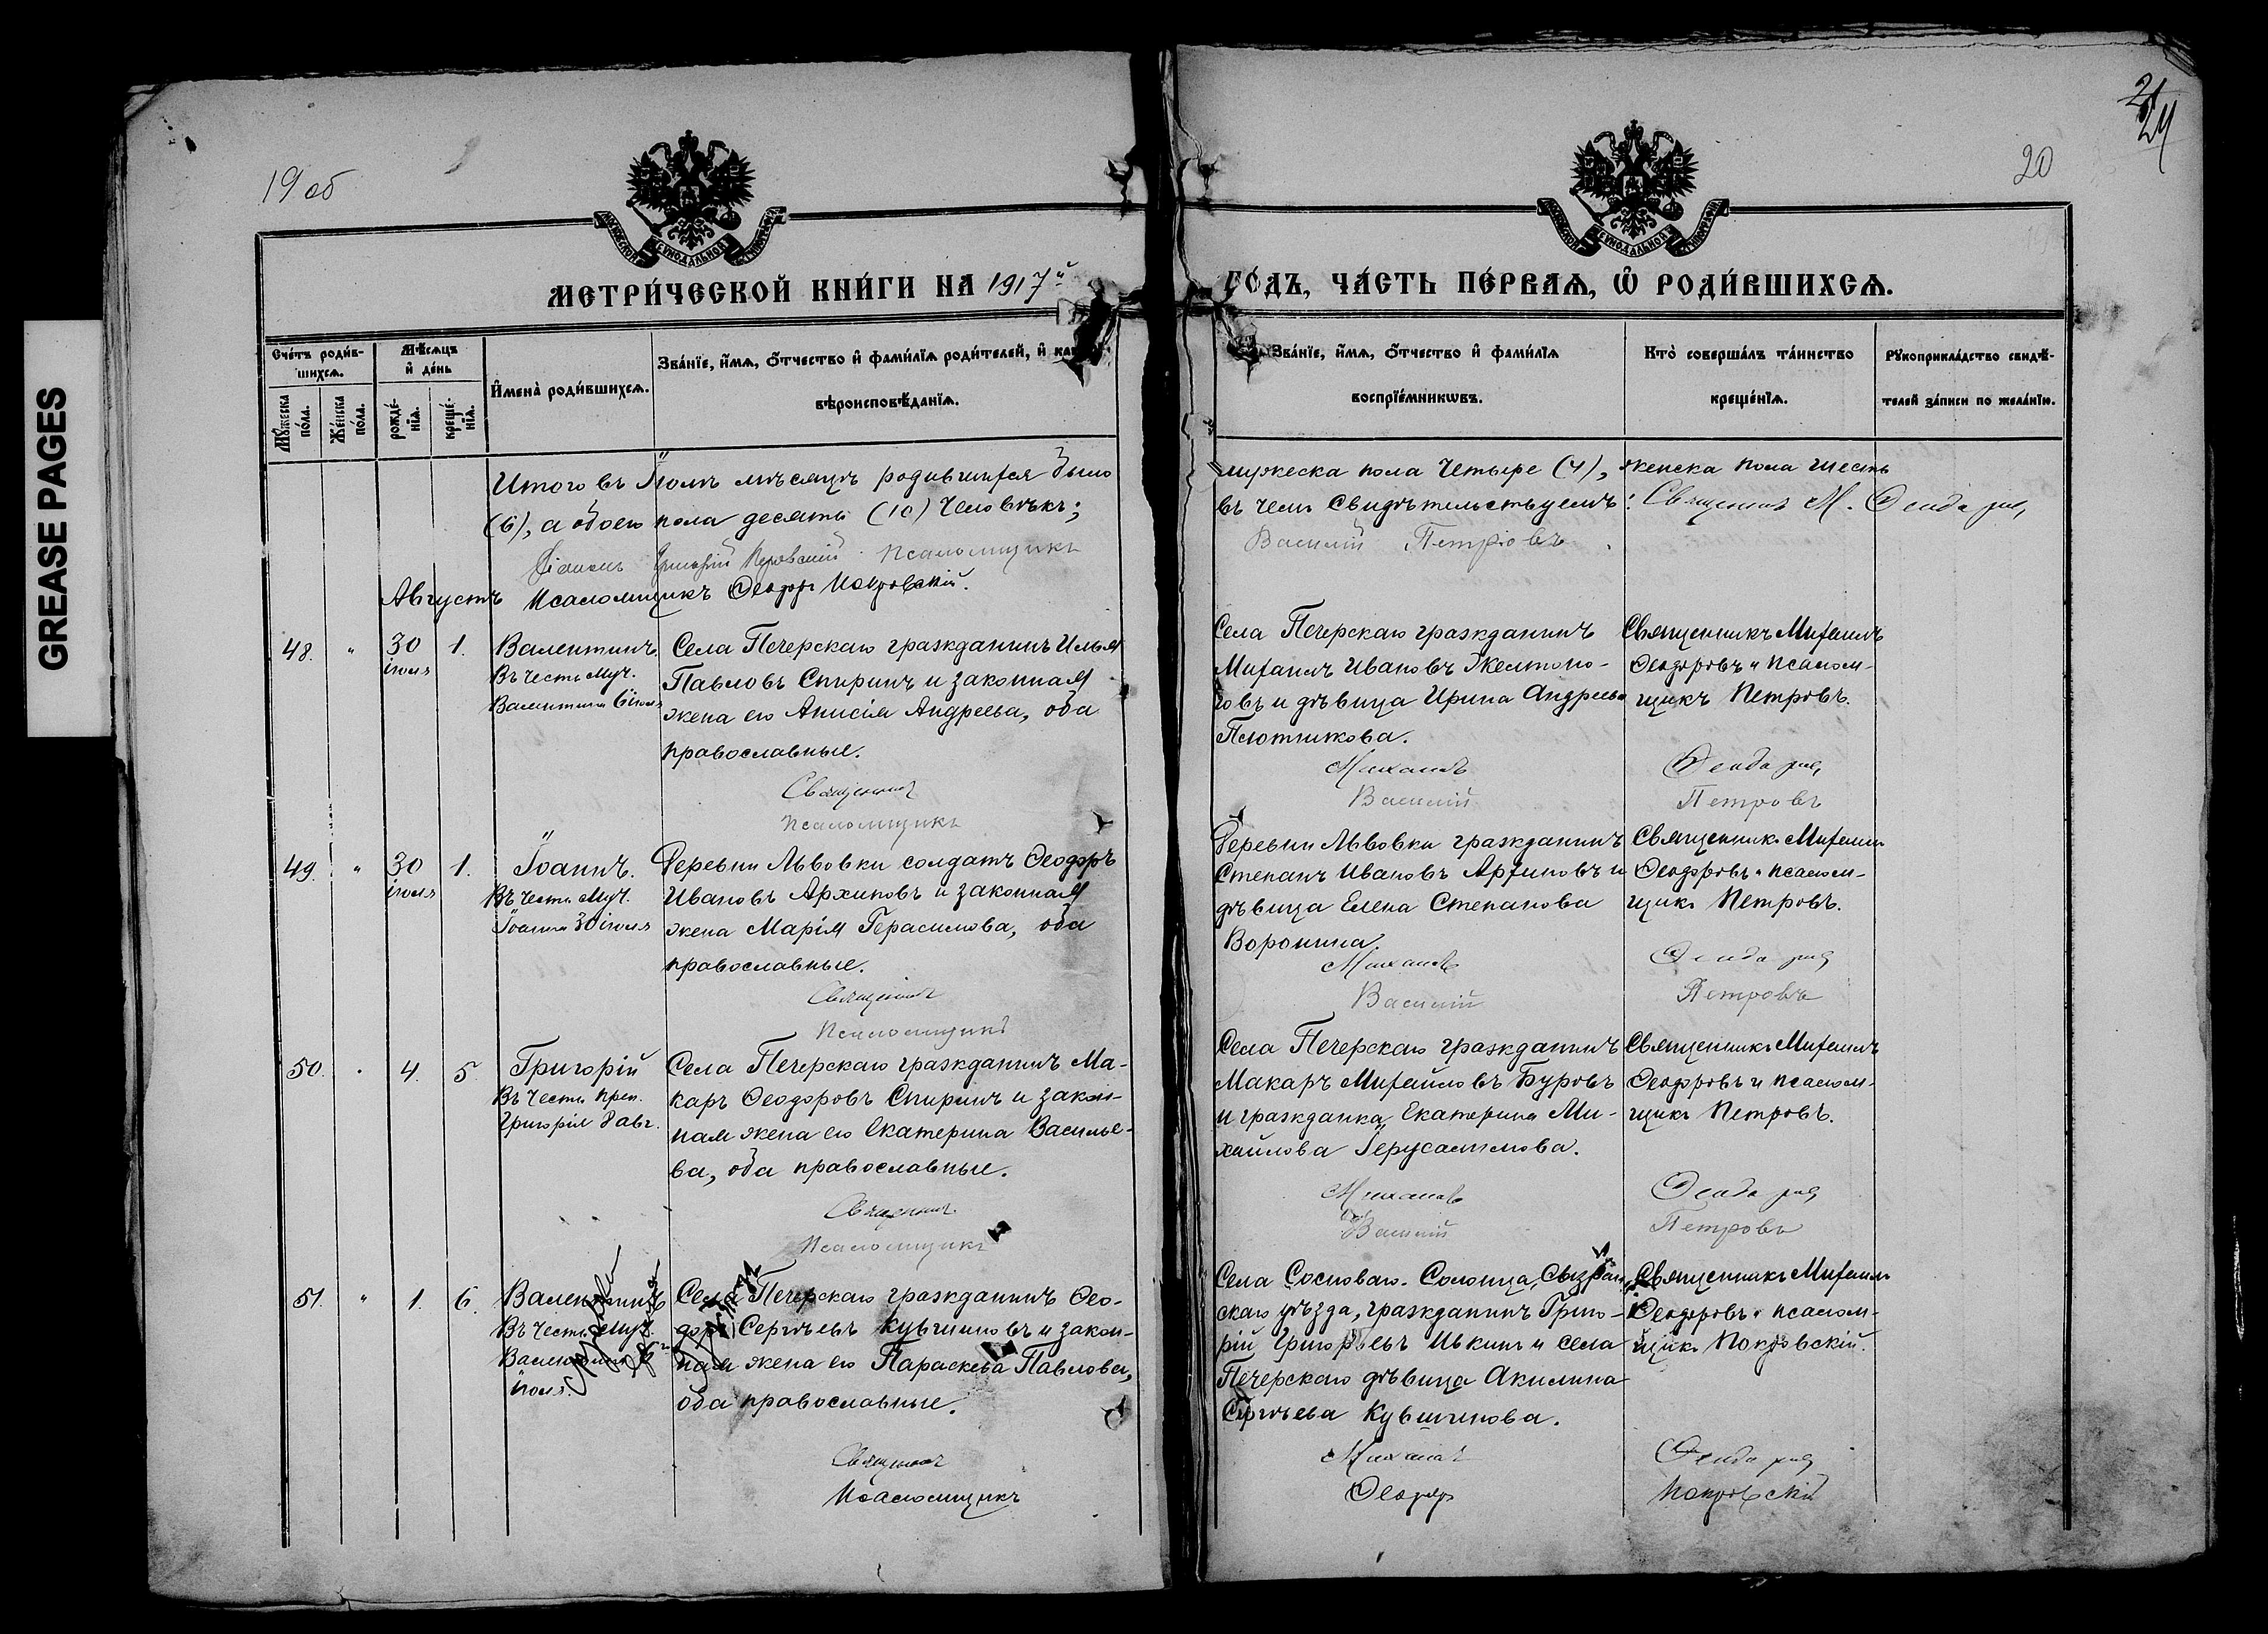 GREASE PAGES
19 об
20
24
МЕТРИ́ЧЕСКОЙ КНИ́ГИ НА 1917й
ГО́ДЪ, ЧА́СТЬ ПЕ́РВАѦ, Ѡ҆ РОДИ́ВШИХСѦ.
Сче́тъ роди́в-
шихсѧ.
Мѣ́сѧцъ
и҆ де́нь
Мꙋ́жеска
по́ла.
Же́нска
по́ла.
рожде́-
нїѧ.
креще́-
нїѧ.
И҆мена̀ роди́вшихсѧ.
Зва́нїе, и҆́мѧ, ѻ҆́тчество и҆ фами́лїѧ роди́телей, и҆
вѣроисповѣ́данїѧ.
Зва́нїе, и҆́мѧ, ѻ҆́тчество и҆ фами́лїѧ
воспрїе́мникѡвъ.
Кто̀ соверша́лъ та́инство
креще́нїѧ.
Рꙋкоприкла́дство свидѣ́-
телей за́писи по жела́нїю.
Итого въ Іюлѣ мѣсяцѣ родившихся было
мужеска пола четыре (4), женска пола шесть
(6), а обоего пола десять (10) человѣкъ;
въ чемъ свидѣтельствуемъ: Священникъ М.
Діаконъ Псаломщикъ
Василій Петровъ
Августъ Псаломщикъ Ѳеодоръ Покровскій.
48. " 30 іюля 1.
Валентинъ.
Въ честь муч.
Валентина 6 іюля
Села Печерскаго гражданинъ Илья
Павловъ Спиринъ и законная
жена его Анисія Андреева, оба
православные.
Священникъ
Псаломщикъ
Села Печерскаго гражданинъ
Михаилъ Ивановъ Желтоно-
говъ и дѣвица Ирина Андреева
Плотникова.
Михаилъ
Василій
Священникъ Михаилъ
Ѳеодоровъ и псалом-
щикъ Петровъ.
Петровъ
49. " 30 іюля 1.
Іоаннъ.
Въ честь муч.
Іоанна 30 іюля
Деревни Львовки солдатъ Ѳеодоръ
Ивановъ Архиповъ и законная
жена Марія Герасимова, оба
православные.
Священникъ
Псаломщикъ
Деревни Львовки гражданинъ
Степанъ Ивановъ Архиповъ и
дѣвица Елена Степанова
Воронина.
Михаилъ
Василій
Священникъ Михаилъ
Ѳеодоровъ и псалом-
щикъ Петровъ.
Петровъ
50. " 4. 5.
Григорій
Въ честь преп.
Григорія 8 авг.
Села Печерскаго гражданинъ Ма-
каръ Ѳеодоровъ Спиринъ и закон-
ная жена его Екатерина Василье-
ва, оба православные.
Священникъ
Псаломщикъ
Села Печерскаго гражданинъ
Макаръ Михайловъ Буровъ
и гражданка Екатерина Ми-
хаилова Іерусалимова.
Михаилъ
Василій
Священникъ Михаилъ
Ѳеодоровъ и псалом-
щикъ Петровъ.
Петровъ
51. " 1. 6.
Валентинъ
Въ честь муч.
Валентина 6
іюля.
Села Печерскаго гражданинъ Ѳео-
доръ Сергѣевъ Кувшиновъ и закон-
ная жена его Параскева Павлова,
оба православные.
Священникъ
Псаломщикъ
Села Сосноваго-Солонца, Сызран-
скаго уѣзда, гражданинъ Григо-
рій Григорьевъ Ивкинъ и села
Печерскаго дѣвица Акилина
Сергѣева Кувшинова.
Михаилъ
Ѳеодоръ
Священникъ Михаилъ
Ѳеодоровъ и псалом-
щикъ Покровскій.
Покровскій